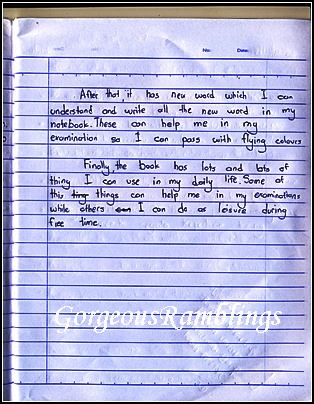 No:      Date:
After that, it has new word which I can
understand and write all the new word in my
notebook. These can help me in my
examination so I can pass with flying colours
Finally, the book has lots and lots of
thing I can use in my daily life. Some of
this things can help me in my examinations
while others I can do as leisure during
free time.
GorgeousRamblings